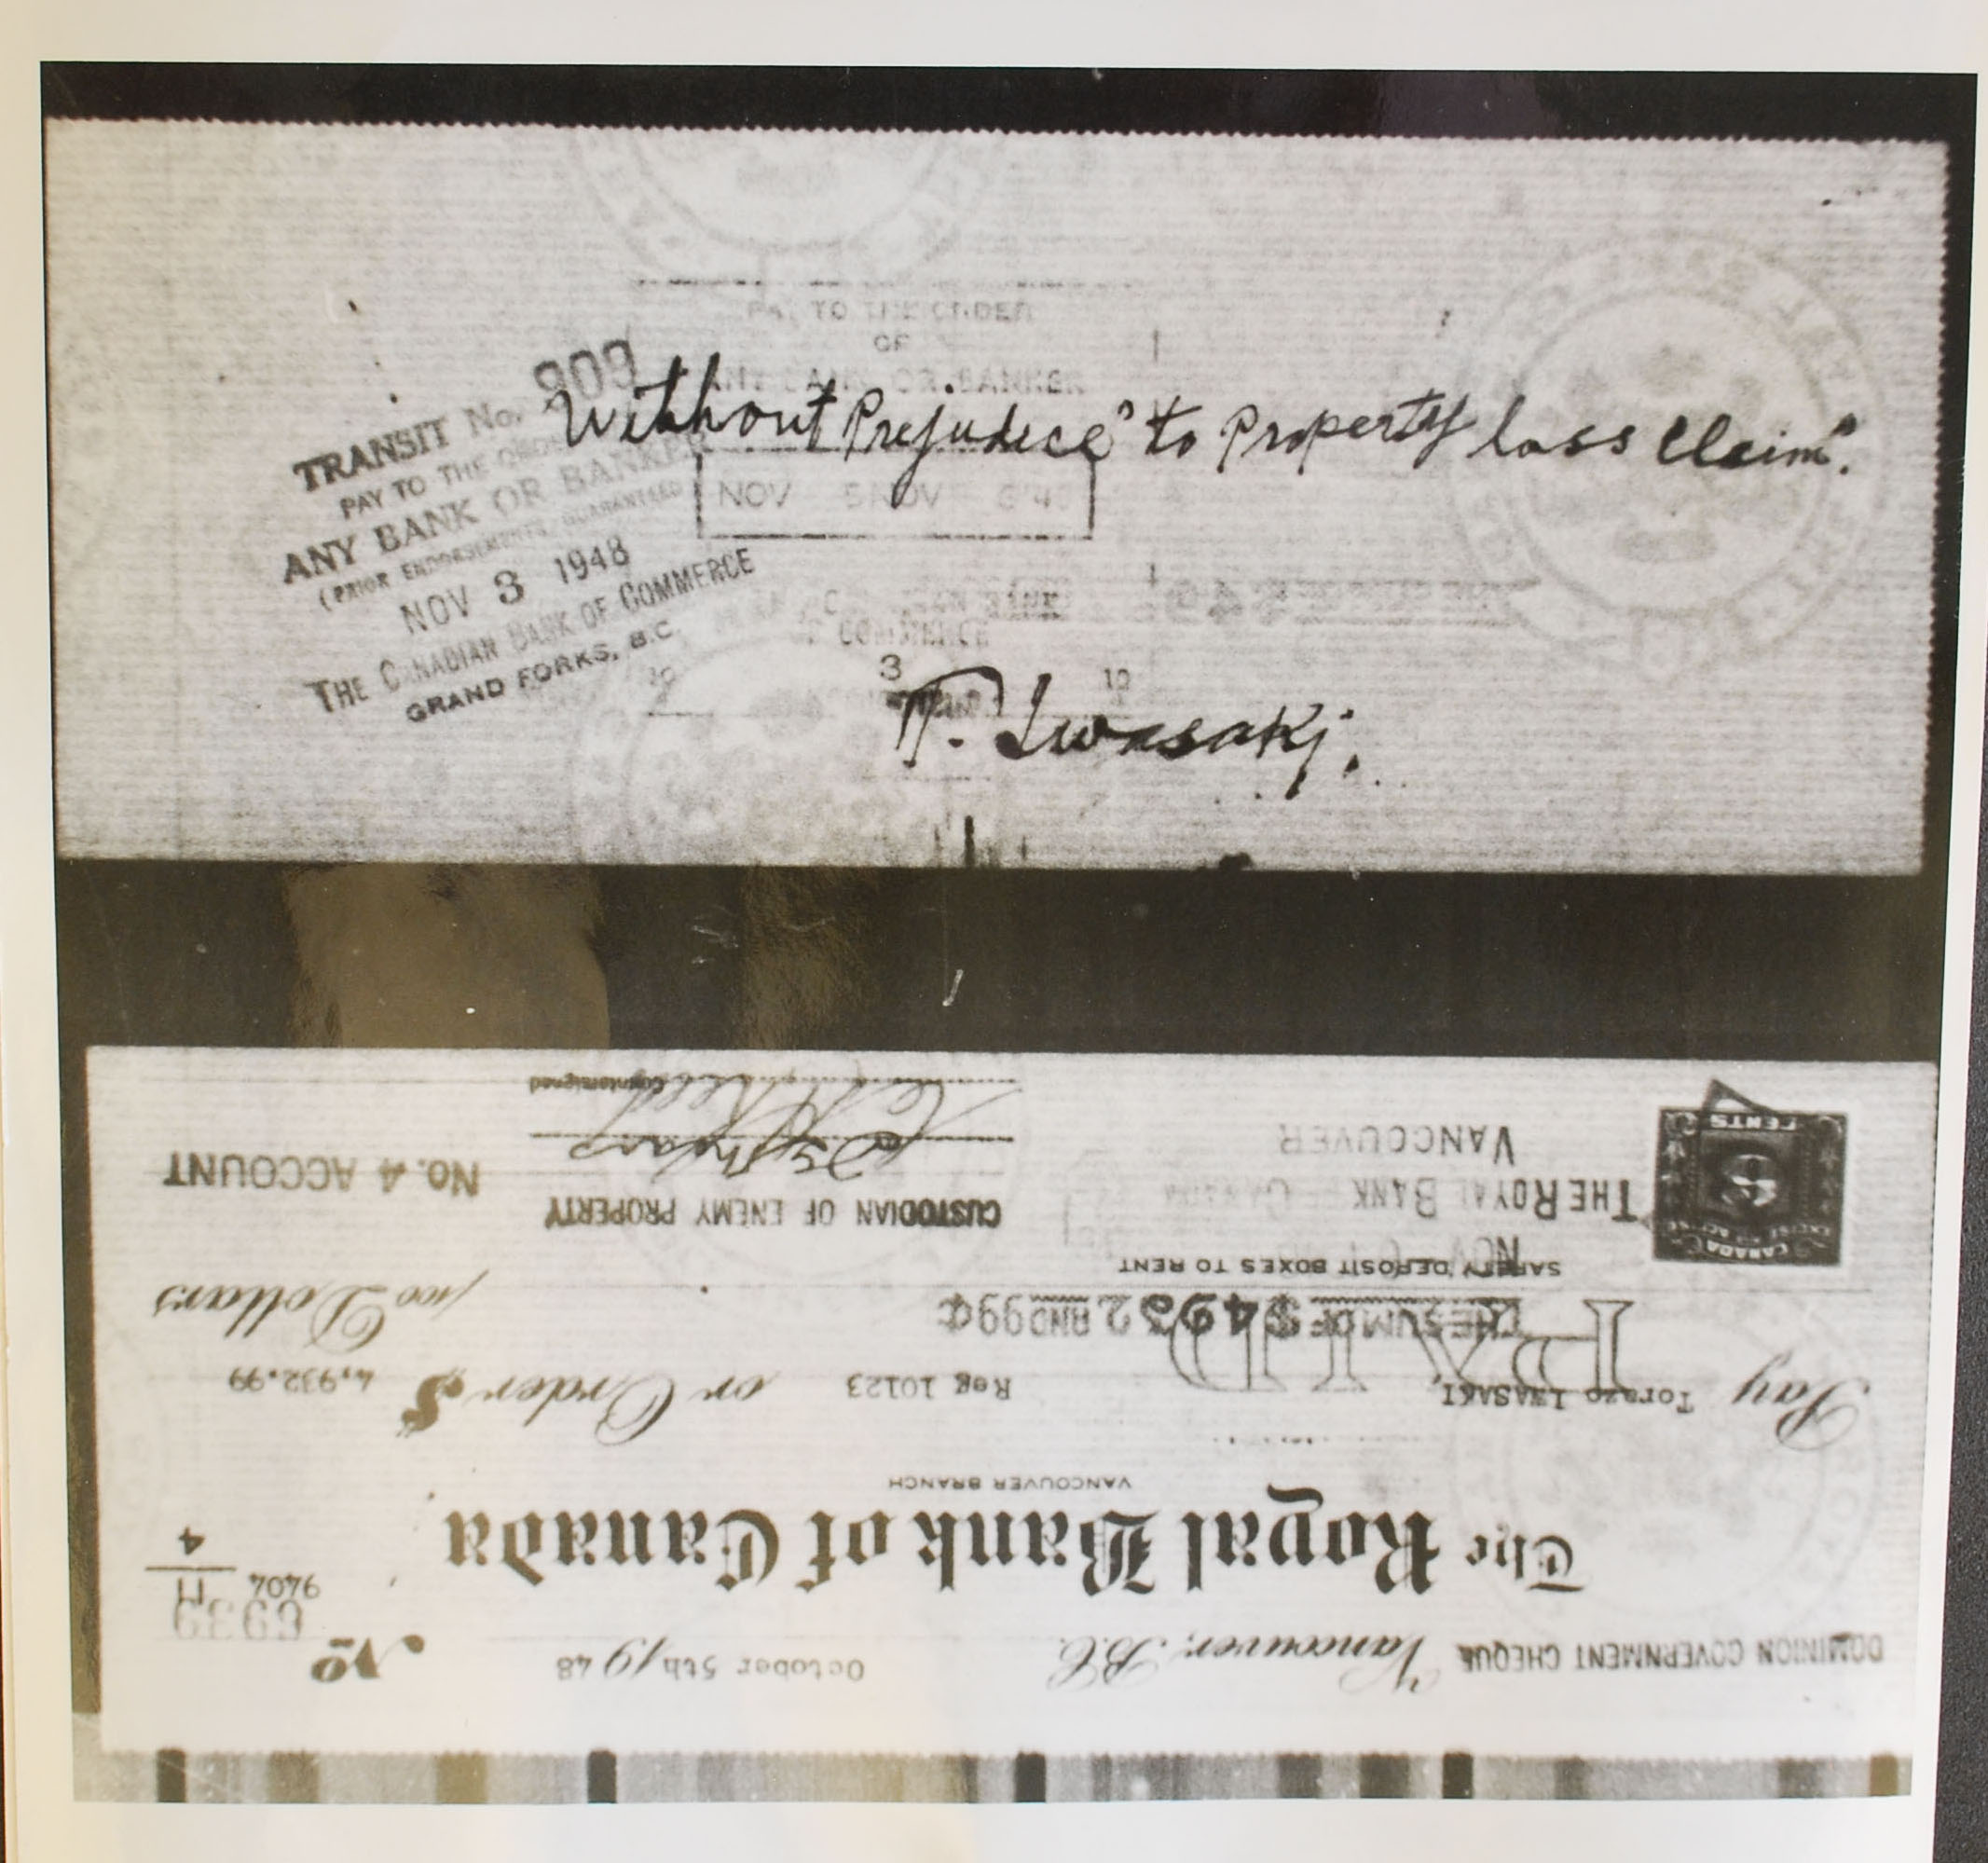 PAY TO THE ORDER
OF
ANY BANK OR BANKER
"Without Prejudice" to Property loss Claim".
TRANSIT No. 909
PAY TO THE ORDER
ANY BANK OR BANKER
(PRIOR ENDORSEMENTS GUARANTEED
NOV 3 1948
THE CANADIAN BANK OF COMMERCE
GRAND FORKS, B.C.
NOV 5 NOV 6 '48
T. Iwasaki.
DOMINION GOVERNMENT CHEQUE Vancouver, B.C. October 5th 1948 No
6939
9404
11
4
The Royal Bank of Canada
VANCOUVER BRANCH
Pay Torazo IWASAKI Reg 10123 or Order $ 4,932.99
PAID
THE SUM OF $4932 AND 99¢ /100 Dollars
SAFETY DEPOSIT BOXES TO RENT
NOV
THE ROYAL BANK CANADA
VANCOUVER
CUSTODIAN OF ENEMY PROPERTY
No. 4 ACCOUNT
Countersigned
CANADA
EXCISE
3
CENTS